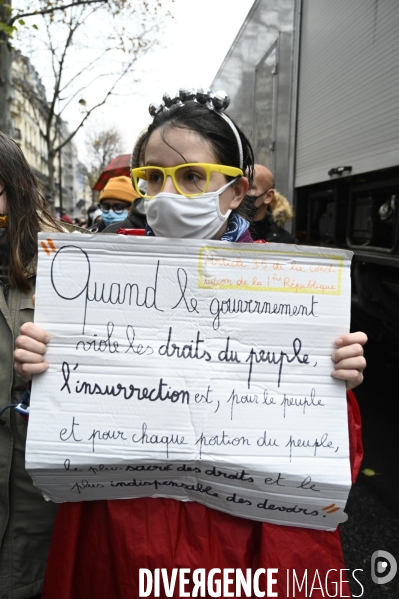 Article 35 de la Cons
de la 1ère République
"Quand le gouvernement
viole les droits du peuple,
l'insurrection est, pour le peuple
et pour chaque portion du peuple,
le plus sacré des droits et le
plus indispensable des devoirs. "
DIVERGENCE IMAGES